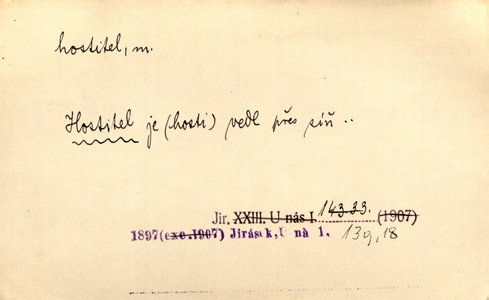 hostitel, m.
Hostitel je (hosti) vedl přes síň ..
Jir. XXIII. U nás I. 143.33. (1907)
1897(exc.1907) Jirásek,U ná 1. 139,18